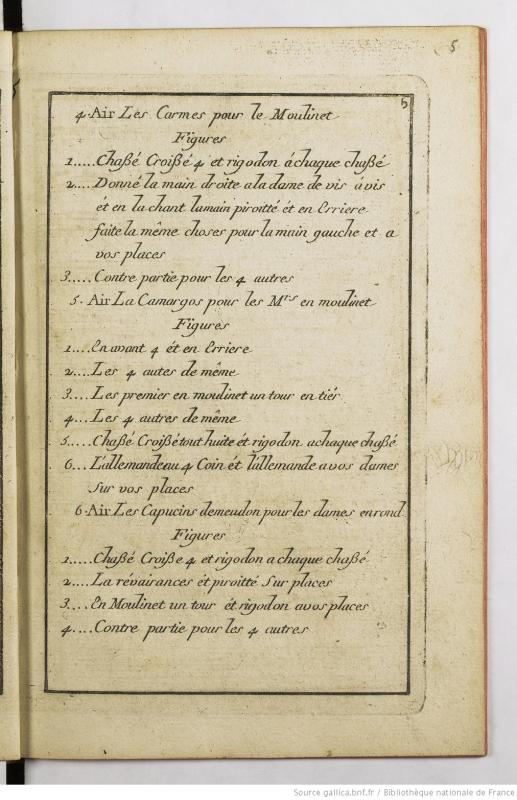 5
5
4. Air Les Carmes pour le Moulinet
Figures
1..... Chaßé Croißé 4 et rigodon á chaque chaßé
2..... Donné la main droite a la dame de vis á vis
ét en la chant la main piroitté ét en Erriere
faite la même choses pour la main gauche et a
vos places
3..... Contre partie pour les 4 autres
5. Air La Camargos pour les Mrs en moulinet
Figures
1..... En avant 4 ét en Erriere
2.... Les 4 autes de même
3.... Les premier en moulinet un tour en tiér
4.... Les 4 autres de même
5.... Chaßé Croißé tout huite ét rigodon a chaque chaßé
6... L'allemande au 4 Coin ét l'allemande a vos dames
Sur vos places
6. Air Les Capucins demeudon pour les dames en rond
Figures
1..... Chaßé Croiße 4 et rigodon a chaque chaßé
2.... La révairances ét piroitté Sur places
3.... En Moulinet un tour ét rigodon a vos places
4.... Contre partie pour les 4 autres
Source gallica.bnf.fr / Bibliothèque nationale de France